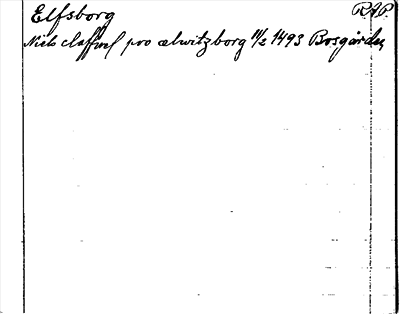 Elfsborg RAP
Niels claffuel pro ælwitzborg 11/2 1493 Bosgården